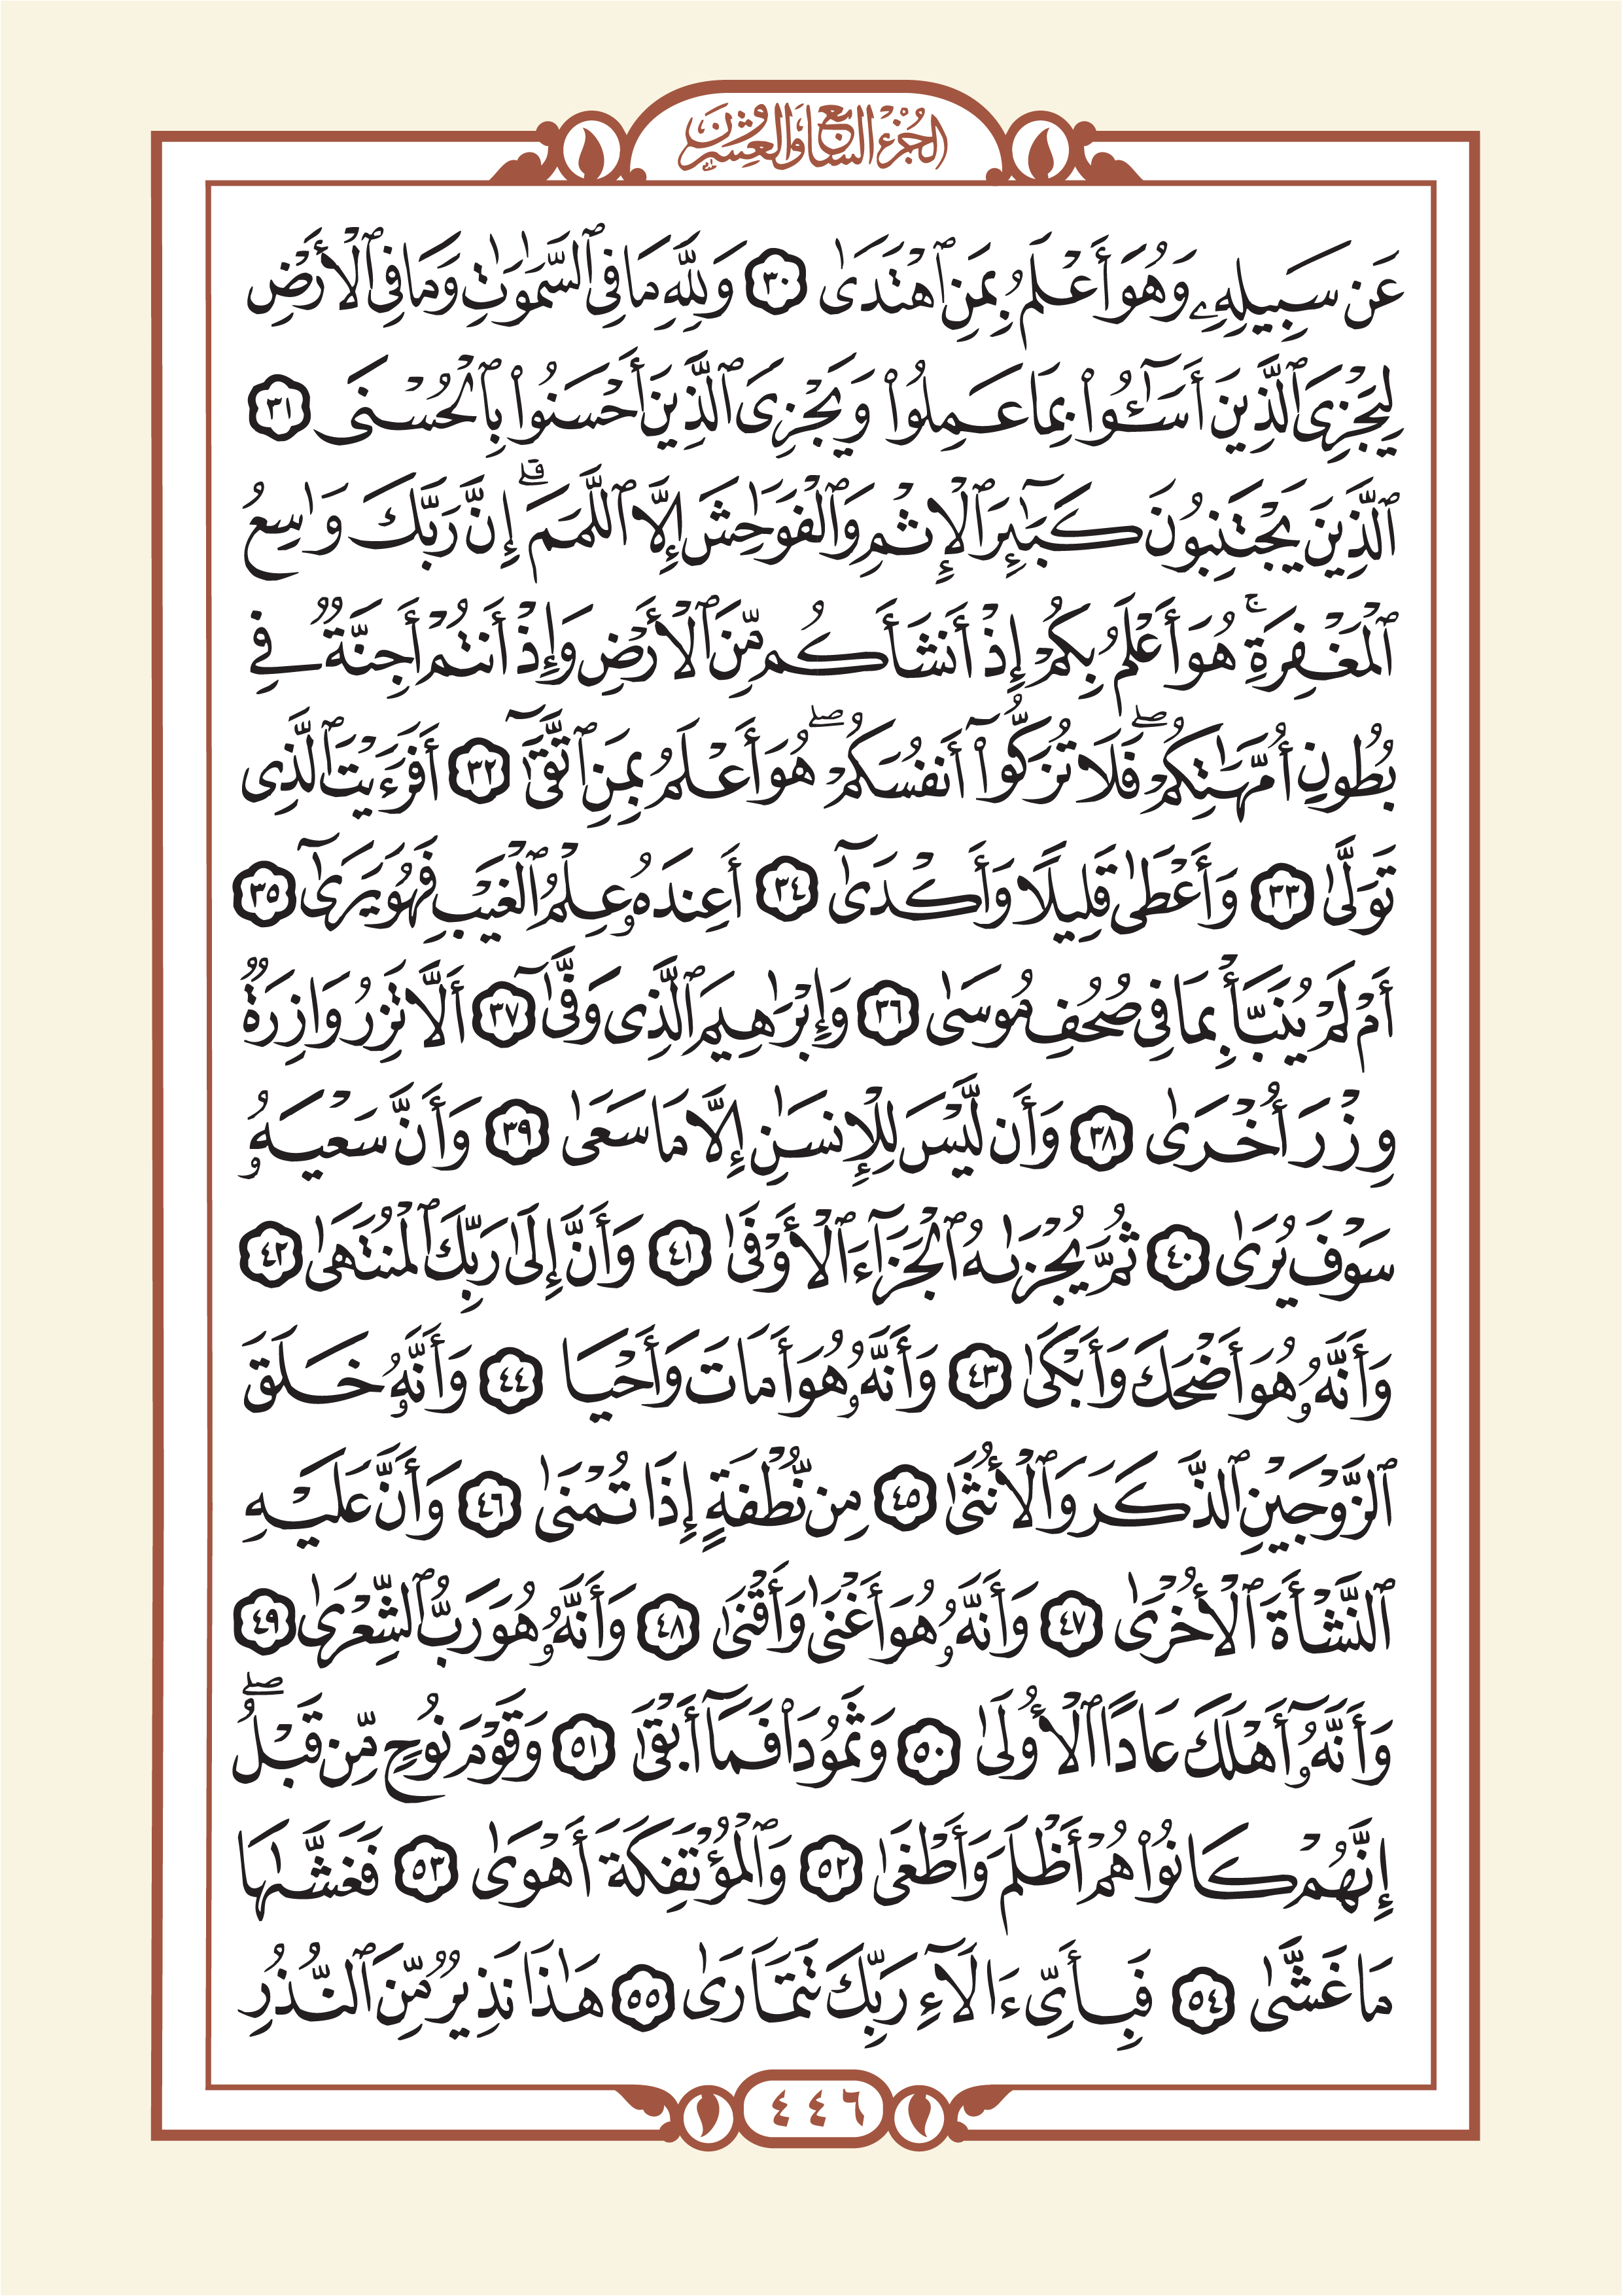 الجزء السابع والعشرون
عَن سَبِيلِهِۦ وَهُوَ أَعْلَمُ بِمَنِ ٱهْتَدَىٰ ٣٠ وَلِلَّهِ مَا فِى ٱلسَّمَٰوَٰتِ وَمَا فِى ٱلْأَرْضِ
لِيَجْزِىَ ٱلَّذِينَ أَسَٰٓـُٔوا۟ بِمَا عَمِلُوا۟ وَيَجْزِىَ ٱلَّذِينَ أَحْسَنُوا۟ بِٱلْحُسْنَى ٣١
ٱلَّذِينَ يَجْتَنِبُونَ كَبَٰٓئِرَ ٱلْإِثْمِ وَٱلْفَوَٰحِشَ إِلَّا ٱللَّمَمَ ۗ إِنَّ رَبَّكَ وَٰسِعُ
ٱلْمَغْفِرَةِ ۚ هُوَ أَعْلَمُ بِكُمْ إِذْ أَنشَأَكُم مِّنَ ٱلْأَرْضِ وَإِذْ أَنتُمْ أَجِنَّةٌ فِى
بُطُونِ أُمَّهَٰتِكُمْ ۖ فَلَا تُزَكُّوٓا۟ أَنفُسَكُمْ ۖ هُوَ أَعْلَمُ بِمَنِ ٱتَّقَىٰٓ ٣٢ أَفَرَءَيْتَ ٱلَّذِى
تَوَلَّىٰ ٣٣ وَأَعْطَىٰ قَلِيلًا وَأَكْدَىٰٓ ٣٤ أَعِندَهُۥ عِلْمُ ٱلْغَيْبِ فَهُوَ يَرَىٰٓ ٣٥
أَمْ لَمْ يُنَبَّأْ بِمَا فِى صُحُفِ مُوسَىٰ ٣٦ وَإِبْرَٰهِيمَ ٱلَّذِى وَفَّىٰٓ ٣٧ أَلَّا تَزِرُ وَازِرَةٌ
وِزْرَ أُخْرَىٰ ٣٨ وَأَن لَّيْسَ لِلْإِنسَٰنِ إِلَّا مَا سَعَىٰ ٣٩ وَأَنَّ سَعْيَهُۥ
سَوْفَ يُرَىٰ ٤٠ ثُمَّ يُجْزَىٰهُ ٱلْجَزَآءَ ٱلْأَوْفَىٰ ٤١ وَأَنَّ إِلَىٰ رَبِّكَ ٱلْمُنتَهَىٰ ٤٢
وَأَنَّهُۥ هُوَ أَضْحَكَ وَأَبْكَىٰ ٤٣ وَأَنَّهُۥ هُوَ أَمَاتَ وَأَحْيَا ٤٤ وَأَنَّهُۥ خَلَقَ
ٱلزَّوْجَيْنِ ٱلذَّكَرَ وَٱلْأُنثَىٰ ٤٥ مِن نُّطْفَةٍ إِذَا تُمْنَىٰ ٤٦ وَأَنَّ عَلَيْهِ
ٱلنَّشْأَةَ ٱلْأُخْرَىٰ ٤٧ وَأَنَّهُۥ هُوَ أَغْنَىٰ وَأَقْنَىٰ ٤٨ وَأَنَّهُۥ هُوَ رَبُّ ٱلشِّعْرَىٰ ٤٩
وَأَنَّهُۥٓ أَهْلَكَ عَادًا ٱلْأُولَىٰ ٥٠ وَثَمُودَا۟ فَمَآ أَبْقَىٰ ٥١ وَقَوْمَ نُوحٍ مِّن قَبْلُ ۖ
إِنَّهُمْ كَانُوا۟ هُمْ أَظْلَمَ وَأَطْغَىٰ ٥٢ وَٱلْمُؤْتَفِكَةَ أَهْوَىٰ ٥٣ فَغَشَّىٰهَا
مَا غَشَّىٰ ٥٤ فَبِأَىِّ ءَالَآءِ رَبِّكَ تَتَمَارَىٰ ٥٥ هَٰذَا نَذِيرٌ مِّنَ ٱلنُّذُرِ
٤٤٦